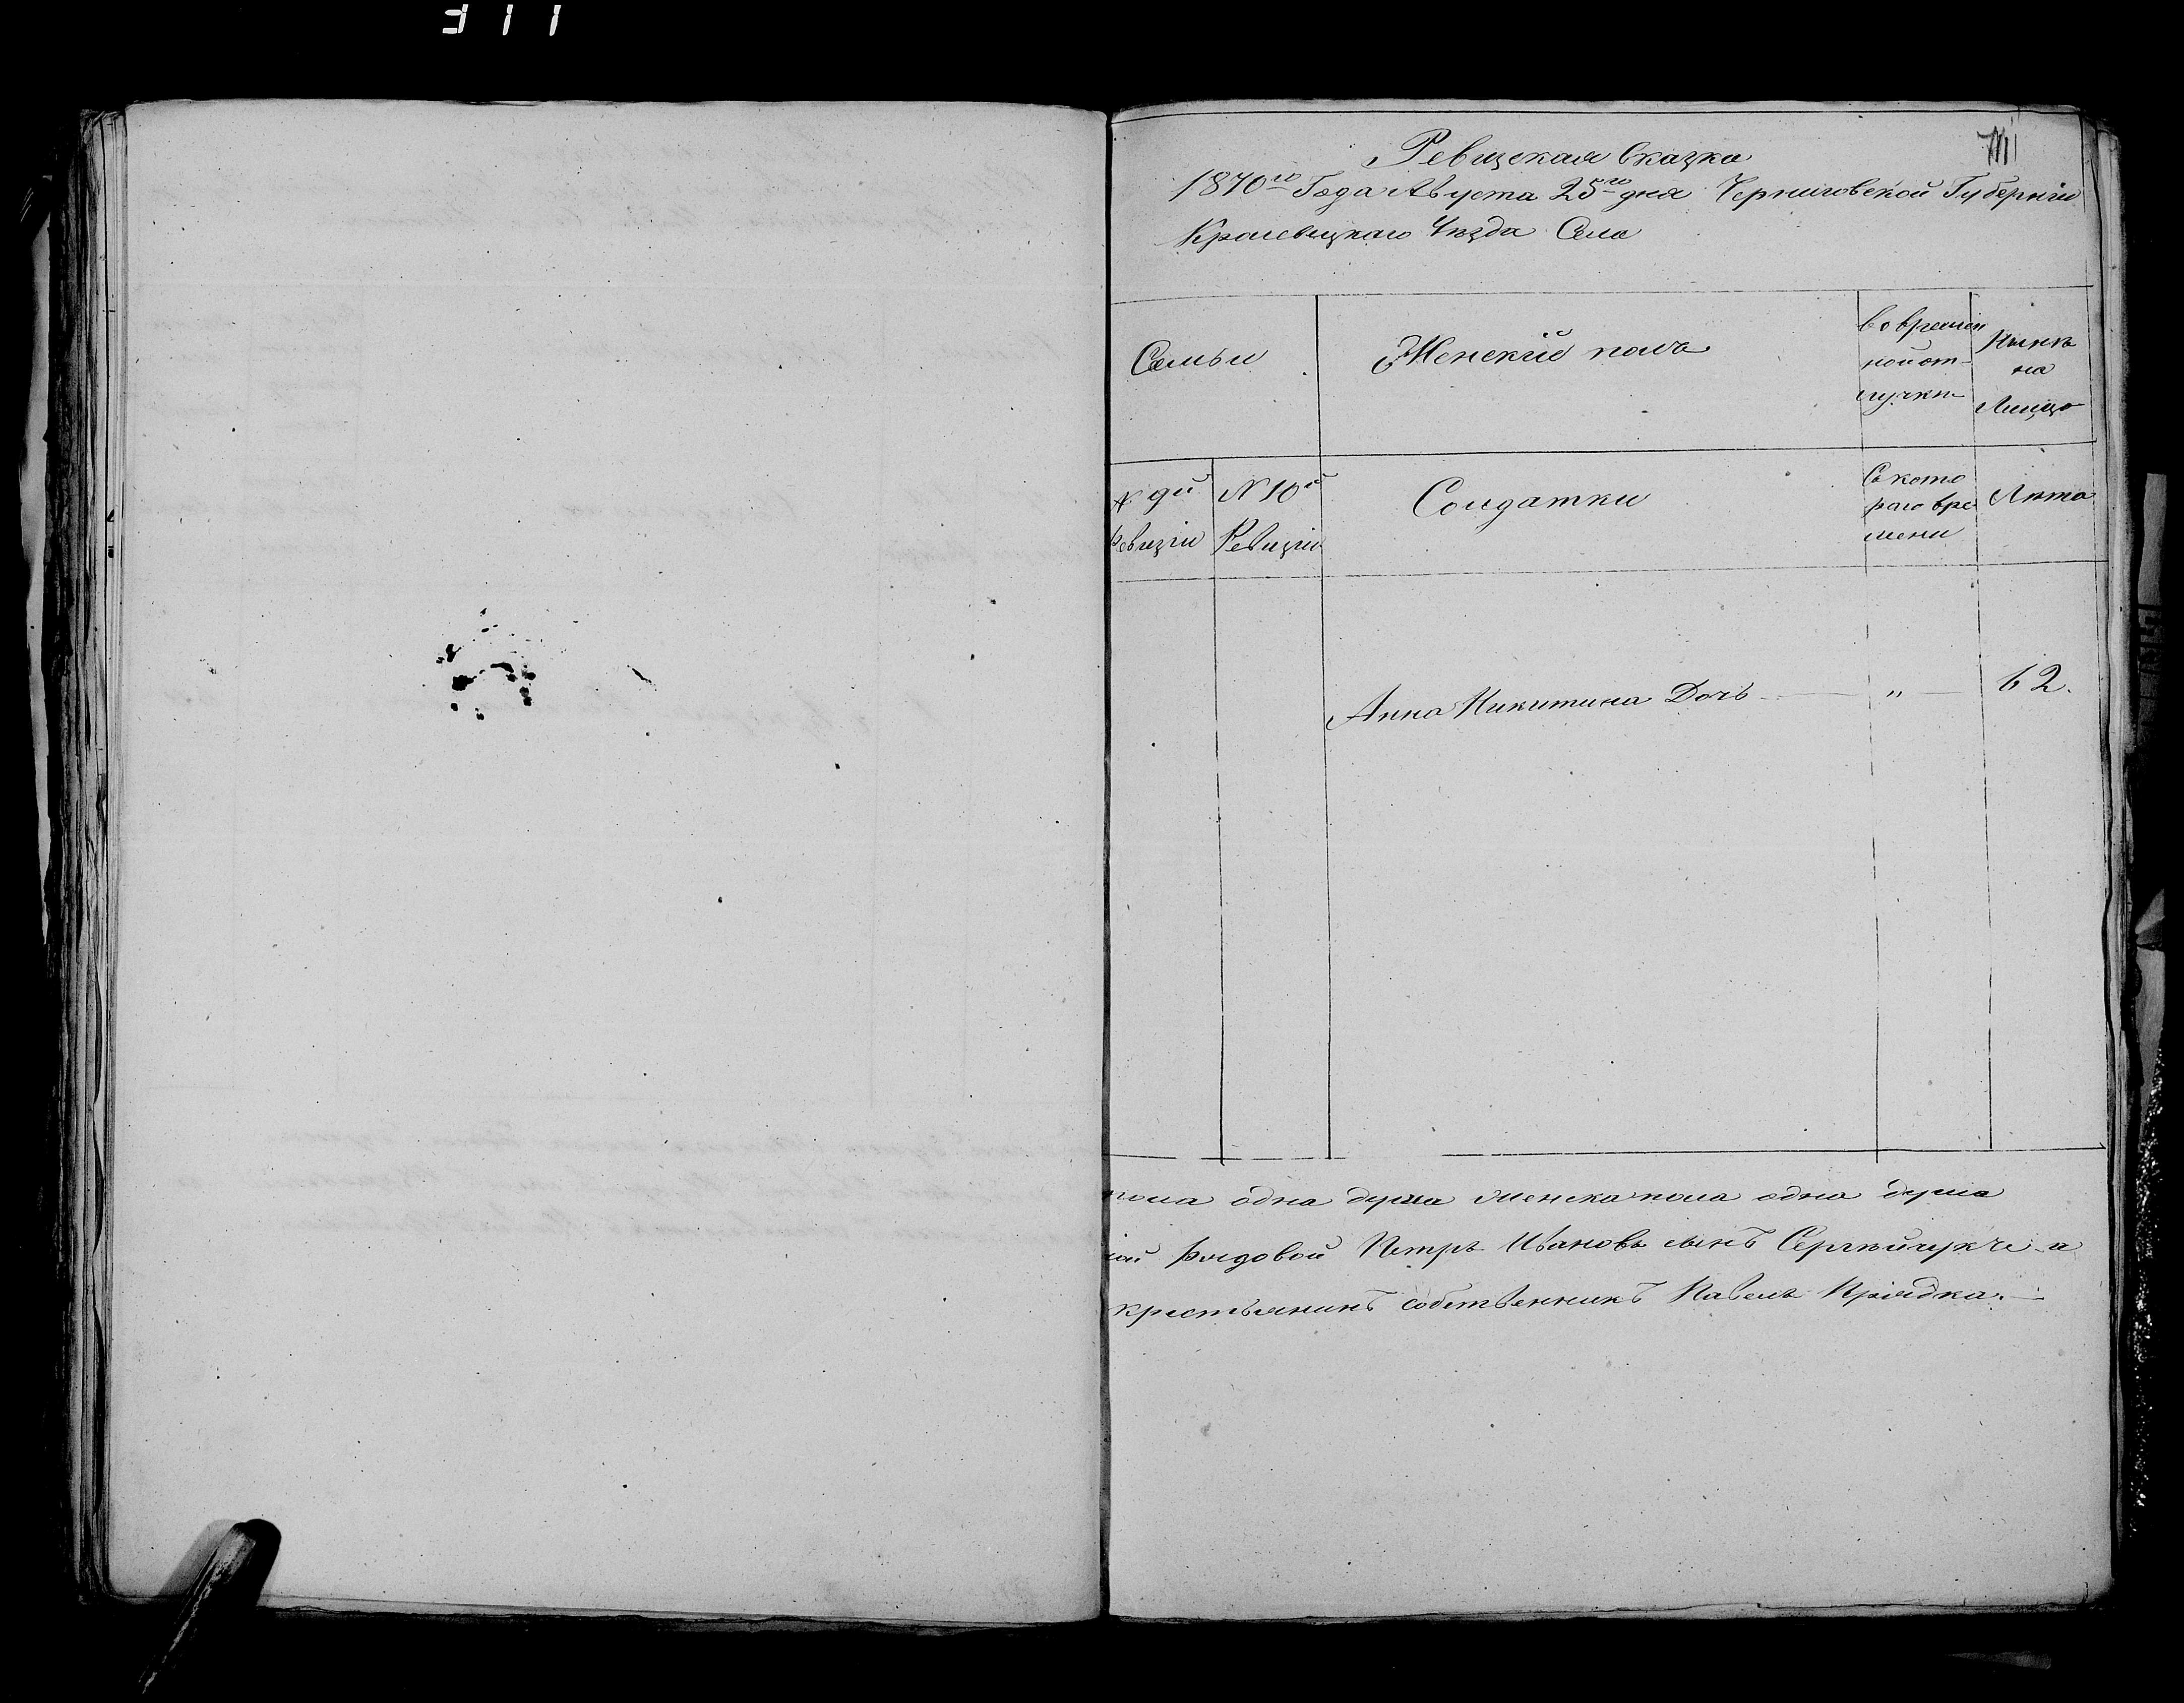 311
Ревизская Сказка
1870го Года Августа 25го дня Черниговской Губерніи
Кролевецкаго Уезда Села
Семьи
Женскій полъ
во времен
ной от-
лучке
Нынѣ
на
Лицо
№ 9й
Ревизіи
№ 10й
Ревизіи
Солдатки
Съ кото
раго вре
мени
Лѣта
Анна Никитина Дочь — " — 62.
пола одна душа Женска пола одна душа
рядовой Петръ Ивановъ сынъ
крестьянинъ собственникъ Павелъ